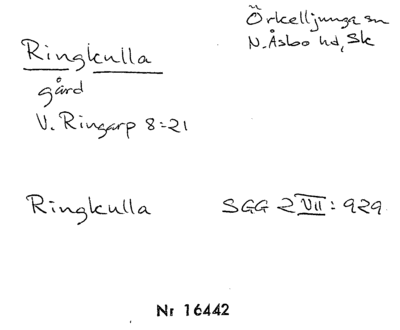 Ringkulla
Örkelljunga sn
N. Åsbo hd, Sk
gård
V. Ringarp 8:21
Ringkulla SGG 2 VII: 929
Nr 16442